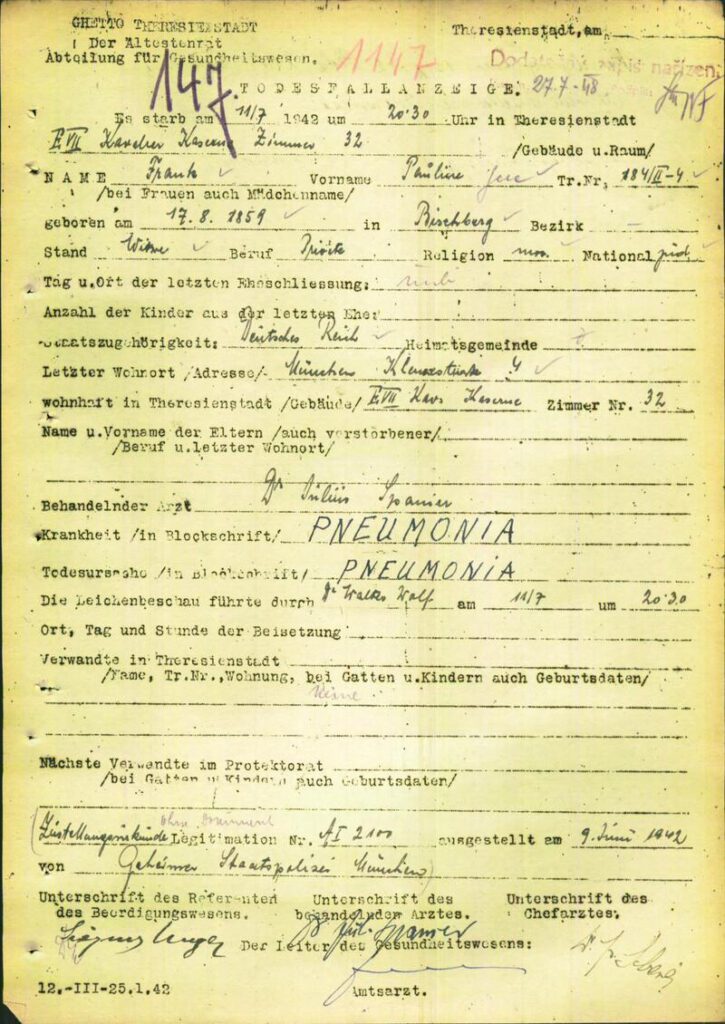 GHETTO THERESIENSTADT Theresienstadt, am
Der Ältestenrat
Abteilung für Gesundheitswesen. 1147
147
TODESFALLANZEIGE. 27.7-48
Es starb am 11/7 1942 um 20·30 Uhr in Theresienstadt
E VII Kavalier Kaserne Zimmer 32 /Gebäude u.Raum/
NAME Frank Vorname Pauline Tr.Nr. 184/II-4
/bei Frauen auch Mädchenname/
geboren am 17. 8. 1859 in Bischberg Bezirk
Stand Witwe Beruf Private Religion mos. National jüd.
Tag u.Ort der letzten Eheschliessung:
Anzahl der Kinder aus der letzten Ehe:
Staatszugehörigkeit: Deutsches Reich Heimatsgemeinde
Letzter Wohnort /Adresse/ München Klenzestrasse 4
wohnhaft in Theresienstadt /Gebäude/ E VII Kav. Kaserne Zimmer Nr. 32
Name u.Vorname der Eltern /auch verstorbener/
/Beruf u.letzter Wohnort/
Behandelnder Arzt Dr Julius Spanier
Krankheit /in Blockschrift/ PNEUMONIA
Todesursache /in Blockschrift/ PNEUMONIA
Die Leichenbeschau führte durch Dr Wolf am 11/7 um 20·30
Ort, Tag und Stunde der Beisetzung
Verwandte in Theresienstadt
/Name, Tr.Nr.,Wohnung, bei Gatten u.Kindern auch Geburtsdaten/
Keine
Nächste Verwandte im Protektorat
/bei Gatten u.Kindern auch Geburtsdaten/
ohne Dokument
Legitimation Nr. AI 2100 ausgestellt am 9. Juni 1942
von Geheimer Staatspolizei München
Unterschrift des Referenten Unterschrift des Unterschrift des
des Beerdigungswesens. behandelnden Arztes. Chefarztes.
Dr Jul. Spanier
Der Leiter des Gesundheitswesens:
12.-III-25.1.42 Amtsarzt.